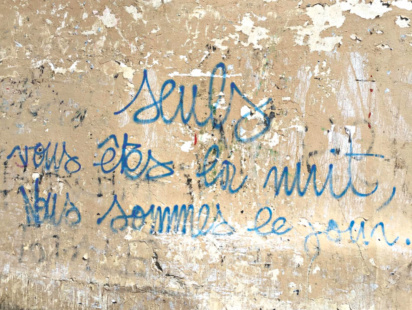 seuls
vous êtes la nuit,
Nous sommes le jour.